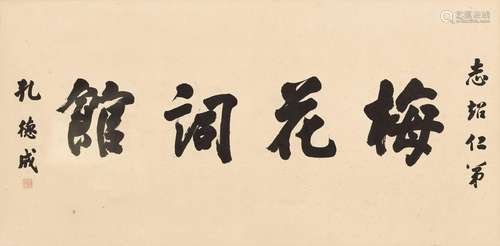 志超仁弟
梅花词館
孔德成